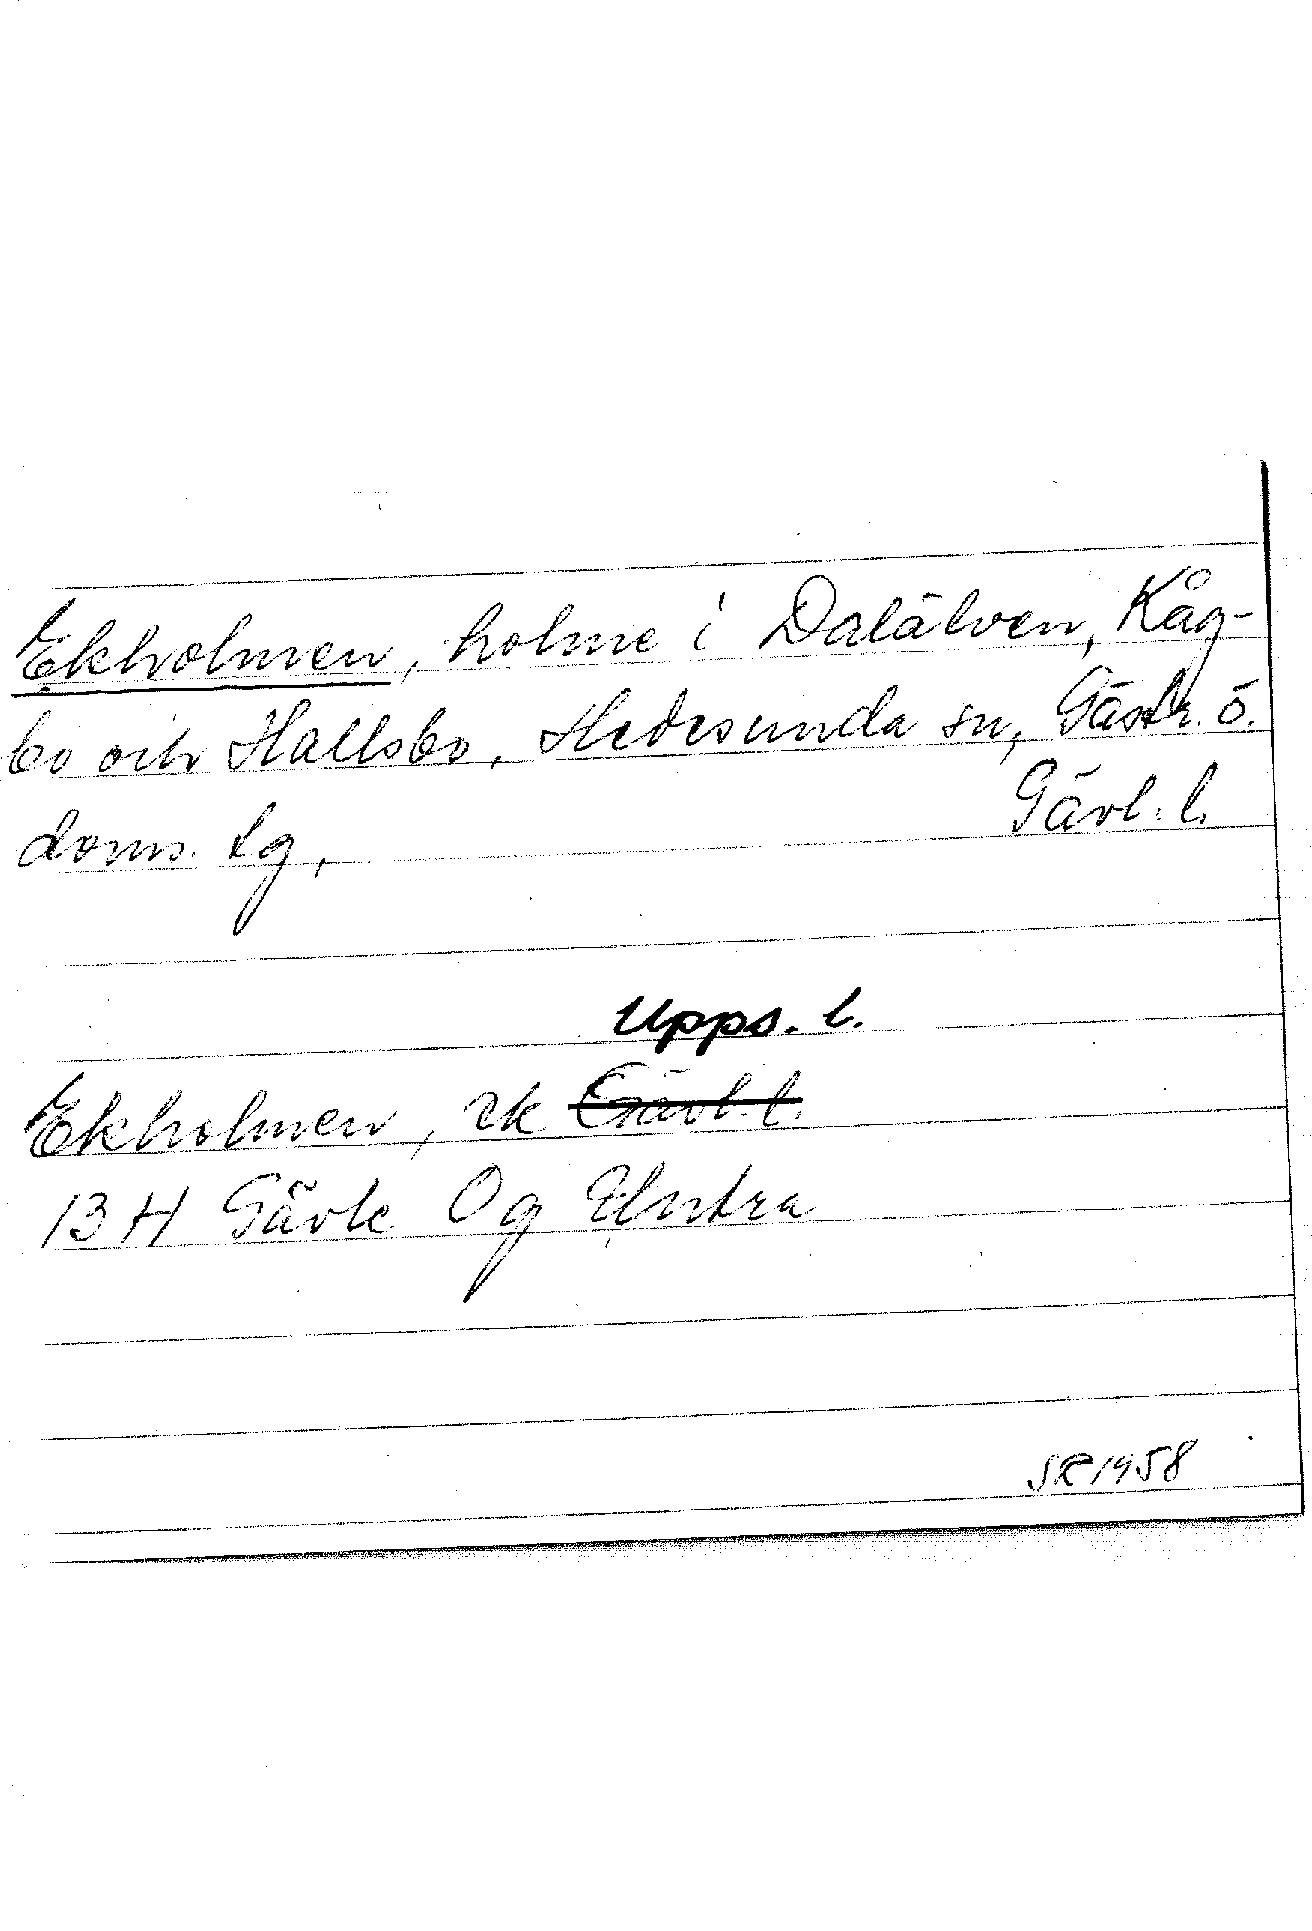 Ekholmen, holme i Dalälven, Kåg-
bo och Hallsbo, Hedesunda sn, Gästr. ö.
doms. tg, Gävl. l.
Upps. l.
Ekholmen, rk Gävl. l.
13 H Gävle Og Untra
SR 1958